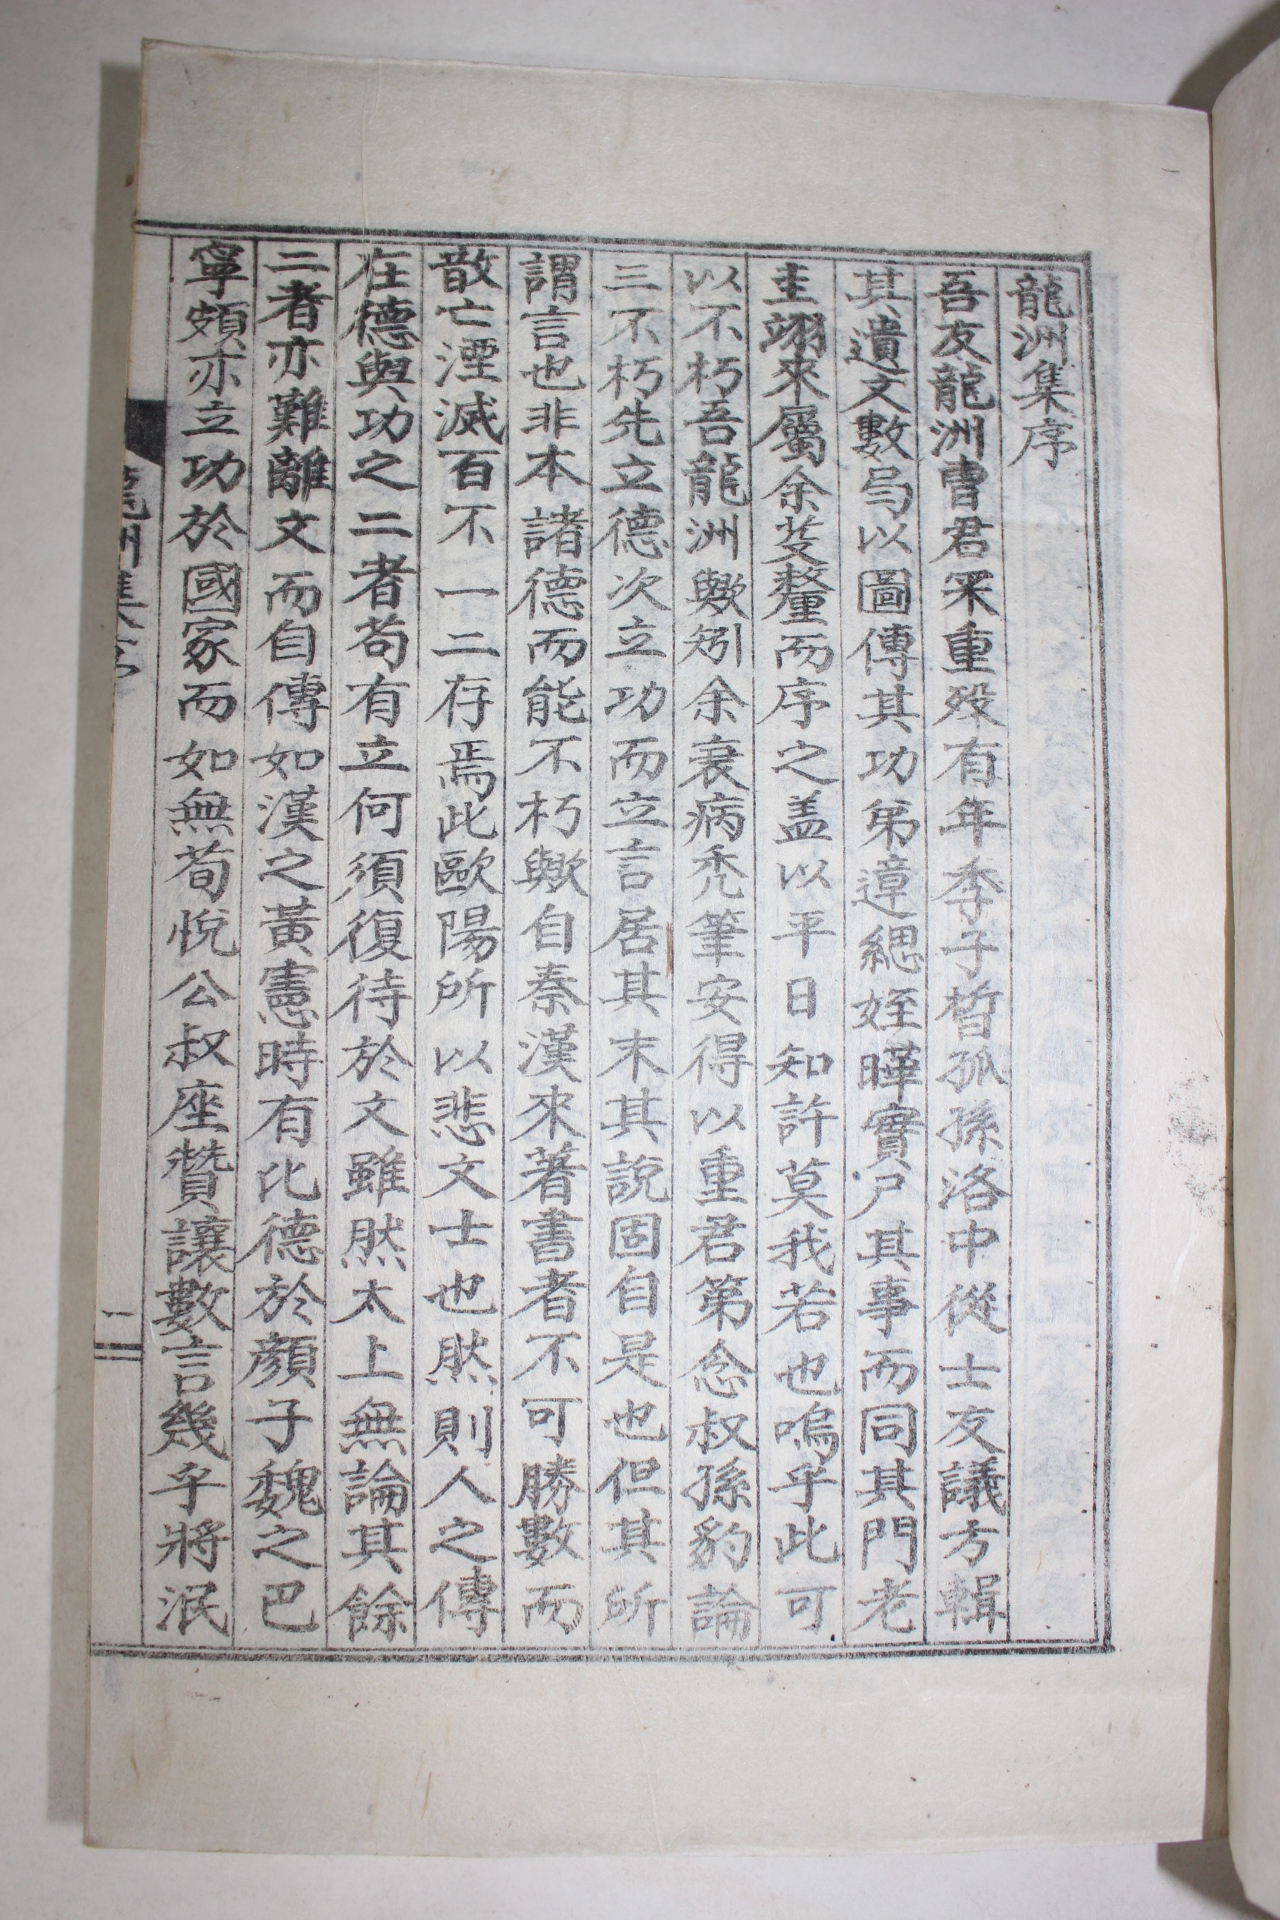 龍洲集序
吾友龍洲曹君罙重歿有年季子晳孤孫洛中從士友議方輯
其遺文數局以圖傳其功弟遧緦姪曄實尸其事而同其門老
圭翊來屬余芟釐而序之盖以平日知許莫我若也嗚乎此可
以不朽吾龍洲歟矧余衰病禿筆安得以重君第念叔孫豹論
三不朽先立德次立功而立言居其末其說固自是也但其所
謂言也非本諸德而能不朽歟自秦漢來著書者不可勝數而
散亡湮滅百不一二存焉此歐陽所以悲文士也然則人之傳
在德與功之二者苟有立何須復待於文雖然太上無論其餘
二者亦難離文而自傳如漢之黃憲時有比德於顏子魏之巴
寧頗亦立功於國家而如無荀悅公叔座贊讓數言幾乎將泯
龍洲集序
一